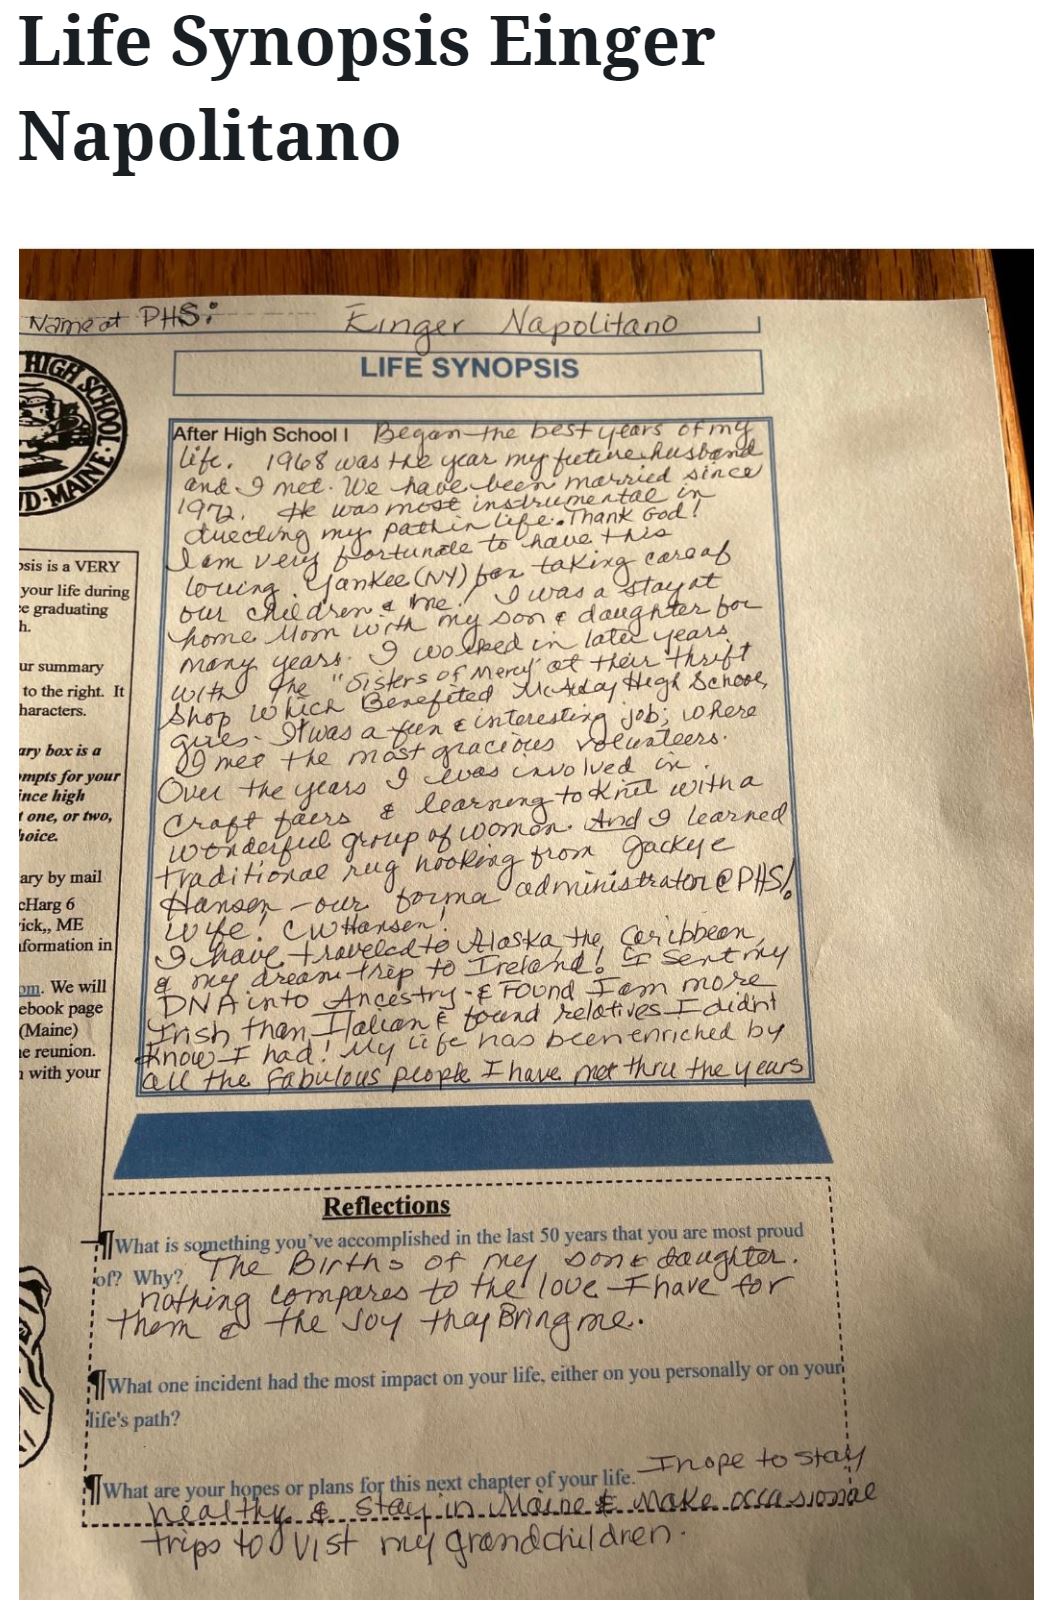 Life Synopsis Einger
Napolitano
Name at PHS: Einger Napolitano
LIFE SYNOPSIS
HIGH SCHOOL
D-MAINE
After High School I Began the best years of my
life. 1968 was the year my future husband
and I met. We have been married since
1972. He was most instrumental in
directing my path in life. Thank God!
I am very fortunate to have this
loving Yankee (NY) for taking care of
our children & me! I was a stay at
home Mom with my son & daughter for
many years. I worked in later years
with The "Sisters of Mercy" at their thrift
Shop which Benefited McAuley High School,
girls. It was a fun & interesting job; where
I met the most gracious volunteers.
Over the years I was involved in
craft fairs & learning to Knit with a
wonderful group of women. And I learned
traditional rug hooking from Jackye
Hansen - our forma administrator @ PHS!
wife! CW Hansen!
I have traveled to Alaska, the Caribbean,
& my dream trip to Ireland! I sent my
DNA into Ancestry - & Found I am more
Irish than Italian & found relatives I didn't
know I had! My life has been enriched by
all the fabulous people I have met thru the years
osis is a VERY
your life during
e graduating
h.
ur summary
to the right. It
haracters.
ary box is a
ompts for your
ince high
t one, or two,
hoice.
ary by mail
cHarg 6
ick,, ME
nformation in
om. We will
ebook page
(Maine)
e reunion.
with your
Reflections
¶What is something you've accomplished in the last 50 years that you are most proud
of? Why? The Births of my son & daughter.
nothing compares to the love I have for
them & the Joy they Bring me.
¶What one incident had the most impact on your life, either on you personally or on your
life's path?
¶What are your hopes or plans for this next chapter of your life. I hope to stay
healthy & stay in Maine & make occasional
trips to vist my grandchildren.